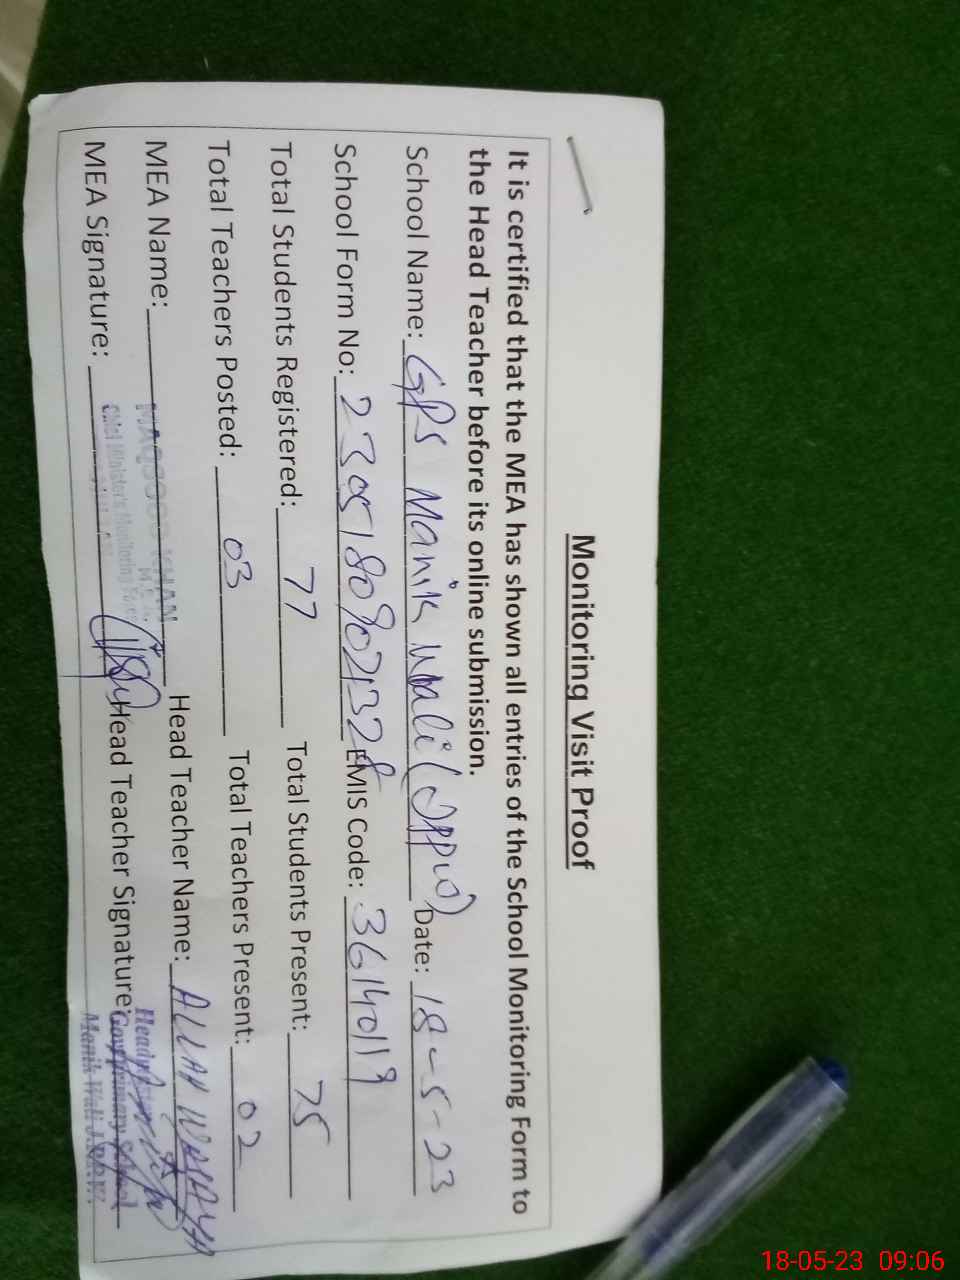 Monitoring Visit Proof
It is certified that the MEA has shown all entries of the School Monitoring Form to
the Head Teacher before its online submission.
School Name: GPS Manik Wali Date: 18-5-23
School Form No: 23051809021328 EMIS Code: 36140119
Total Students Registered: 77 Total Students Present: 75
Total Teachers Posted: 03 Total Teachers Present: 02
MEA Name: MAQSOOD KHAN Head Teacher Name: ALLAH WASAYA
Chief Minister's Monitoring Force
MEA Signature: Head Teacher Signature:
Headmaster
Govt Primary School
Manik Wali
18-05-23 09:06